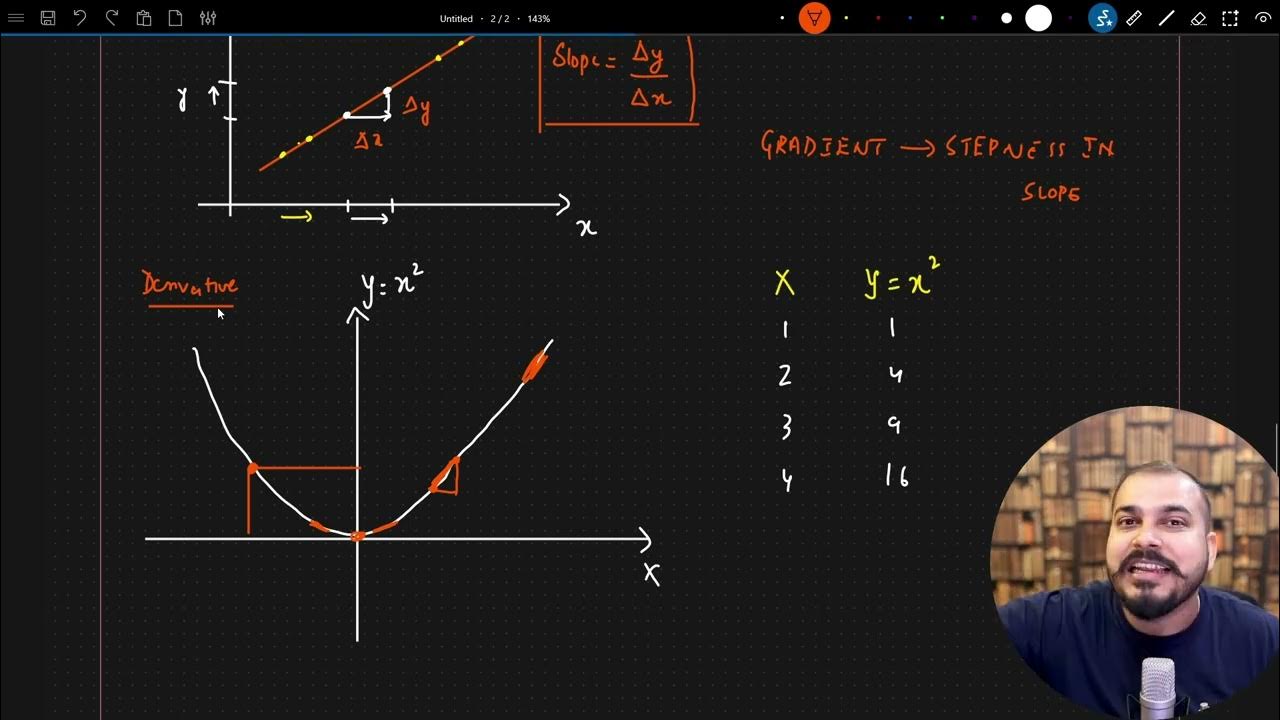 Untitled • 2 / 2 • 143%
Slope = Δy
Δx
y ↑
Δy
Δx
GRADIENT → STEPNESS IN
SLOPE
x
Derivative
y = x²
X y = x²
1 1
2 4
3 9
4 16
X